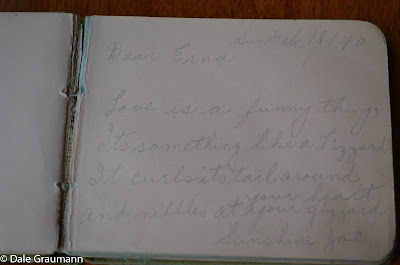 Sun Feb 18/40
Dear Erna
Love is a funny thing,
Its something like a Lizzard
It curls its tail around
your heart
and nibbles at your gizzard
Sunshine Joe
© Dale Graumann